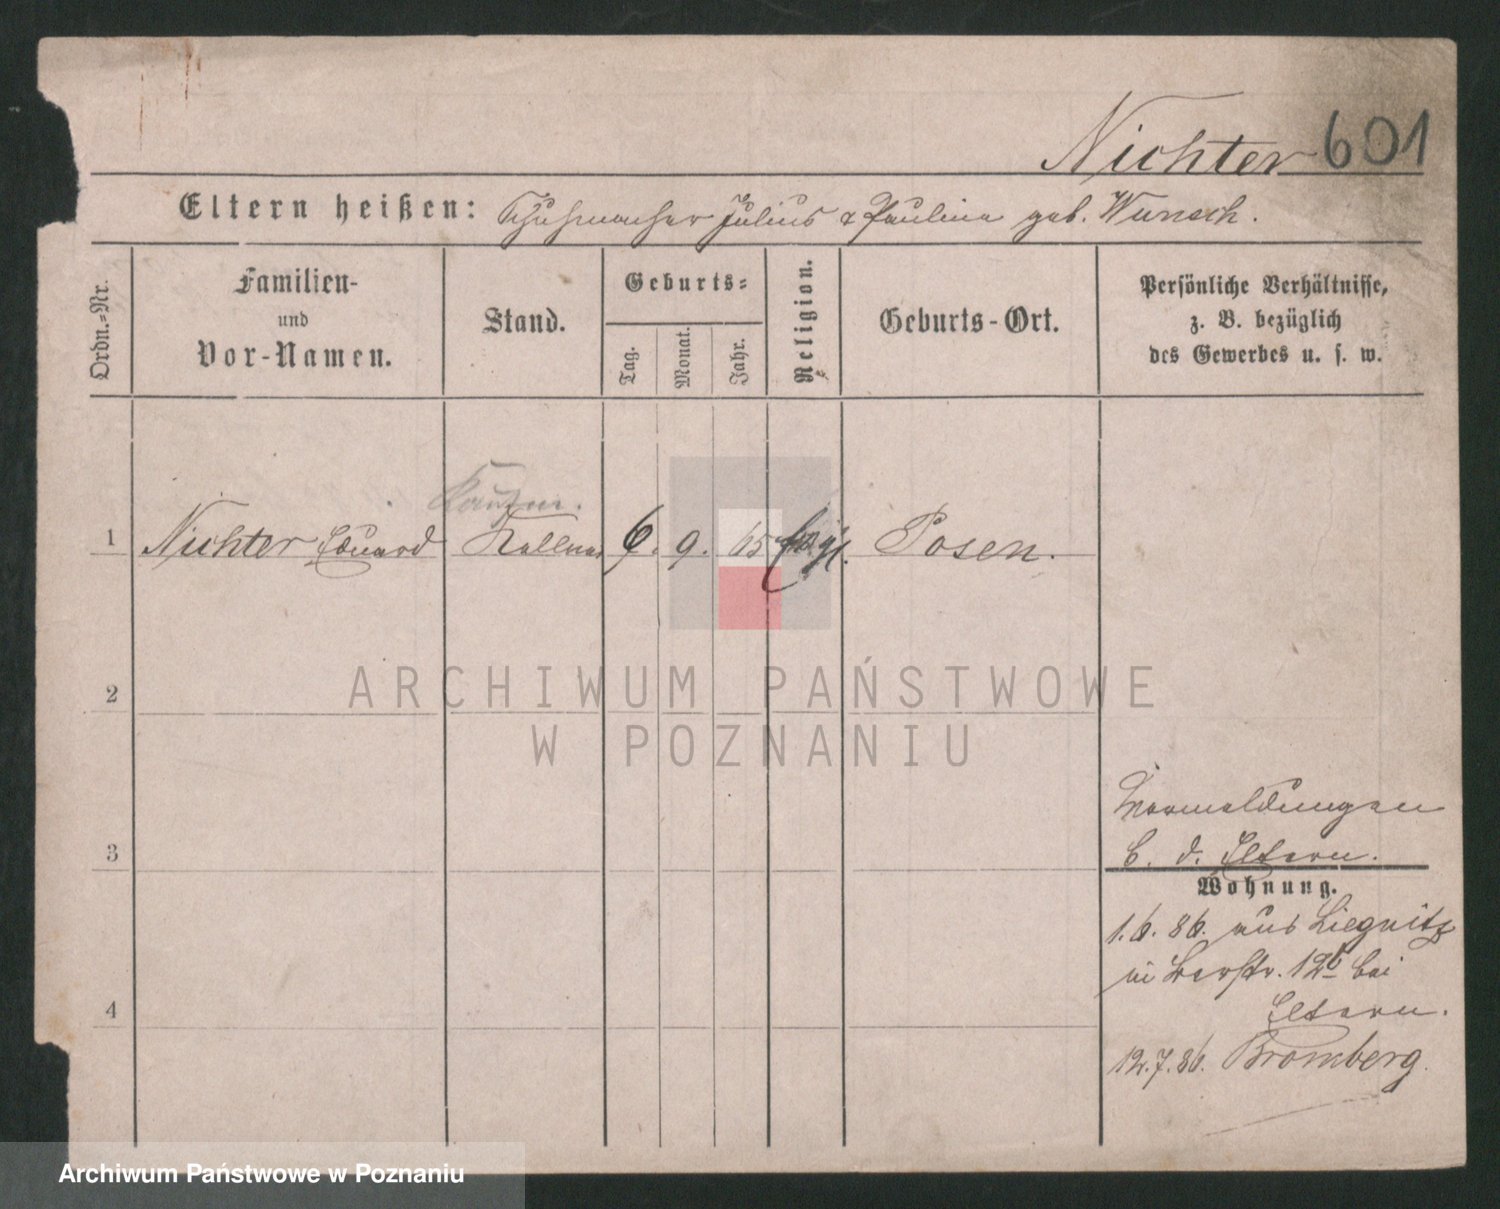 Nichter 601
Eltern heißen: Schuhmacher Julius & Pauline geb. Wunsch.
Ordn.=Nr.
Familien-
und
Vor-Namen.
Stand.
Geburts=
Tag.
Monat.
Jahr.
Religion.
Geburts-Ort.
Persönliche Verhältnisse,
z. B. bezüglich
des Gewerbes u. s. w.
Kaufm.
1 Nichter Eduard Kellner 6. 9. 65 Posen.
2
3
4
Vormeldungen
b. d. Eltern.
Wohnung.
1.6.86. aus Liegnitz
in 12b bei
Eltern.
12.7.86. Bromberg.
ARCHIWUM PAŃSTWOWE
W POZNANIU
Archiwum Państwowe w Poznaniu